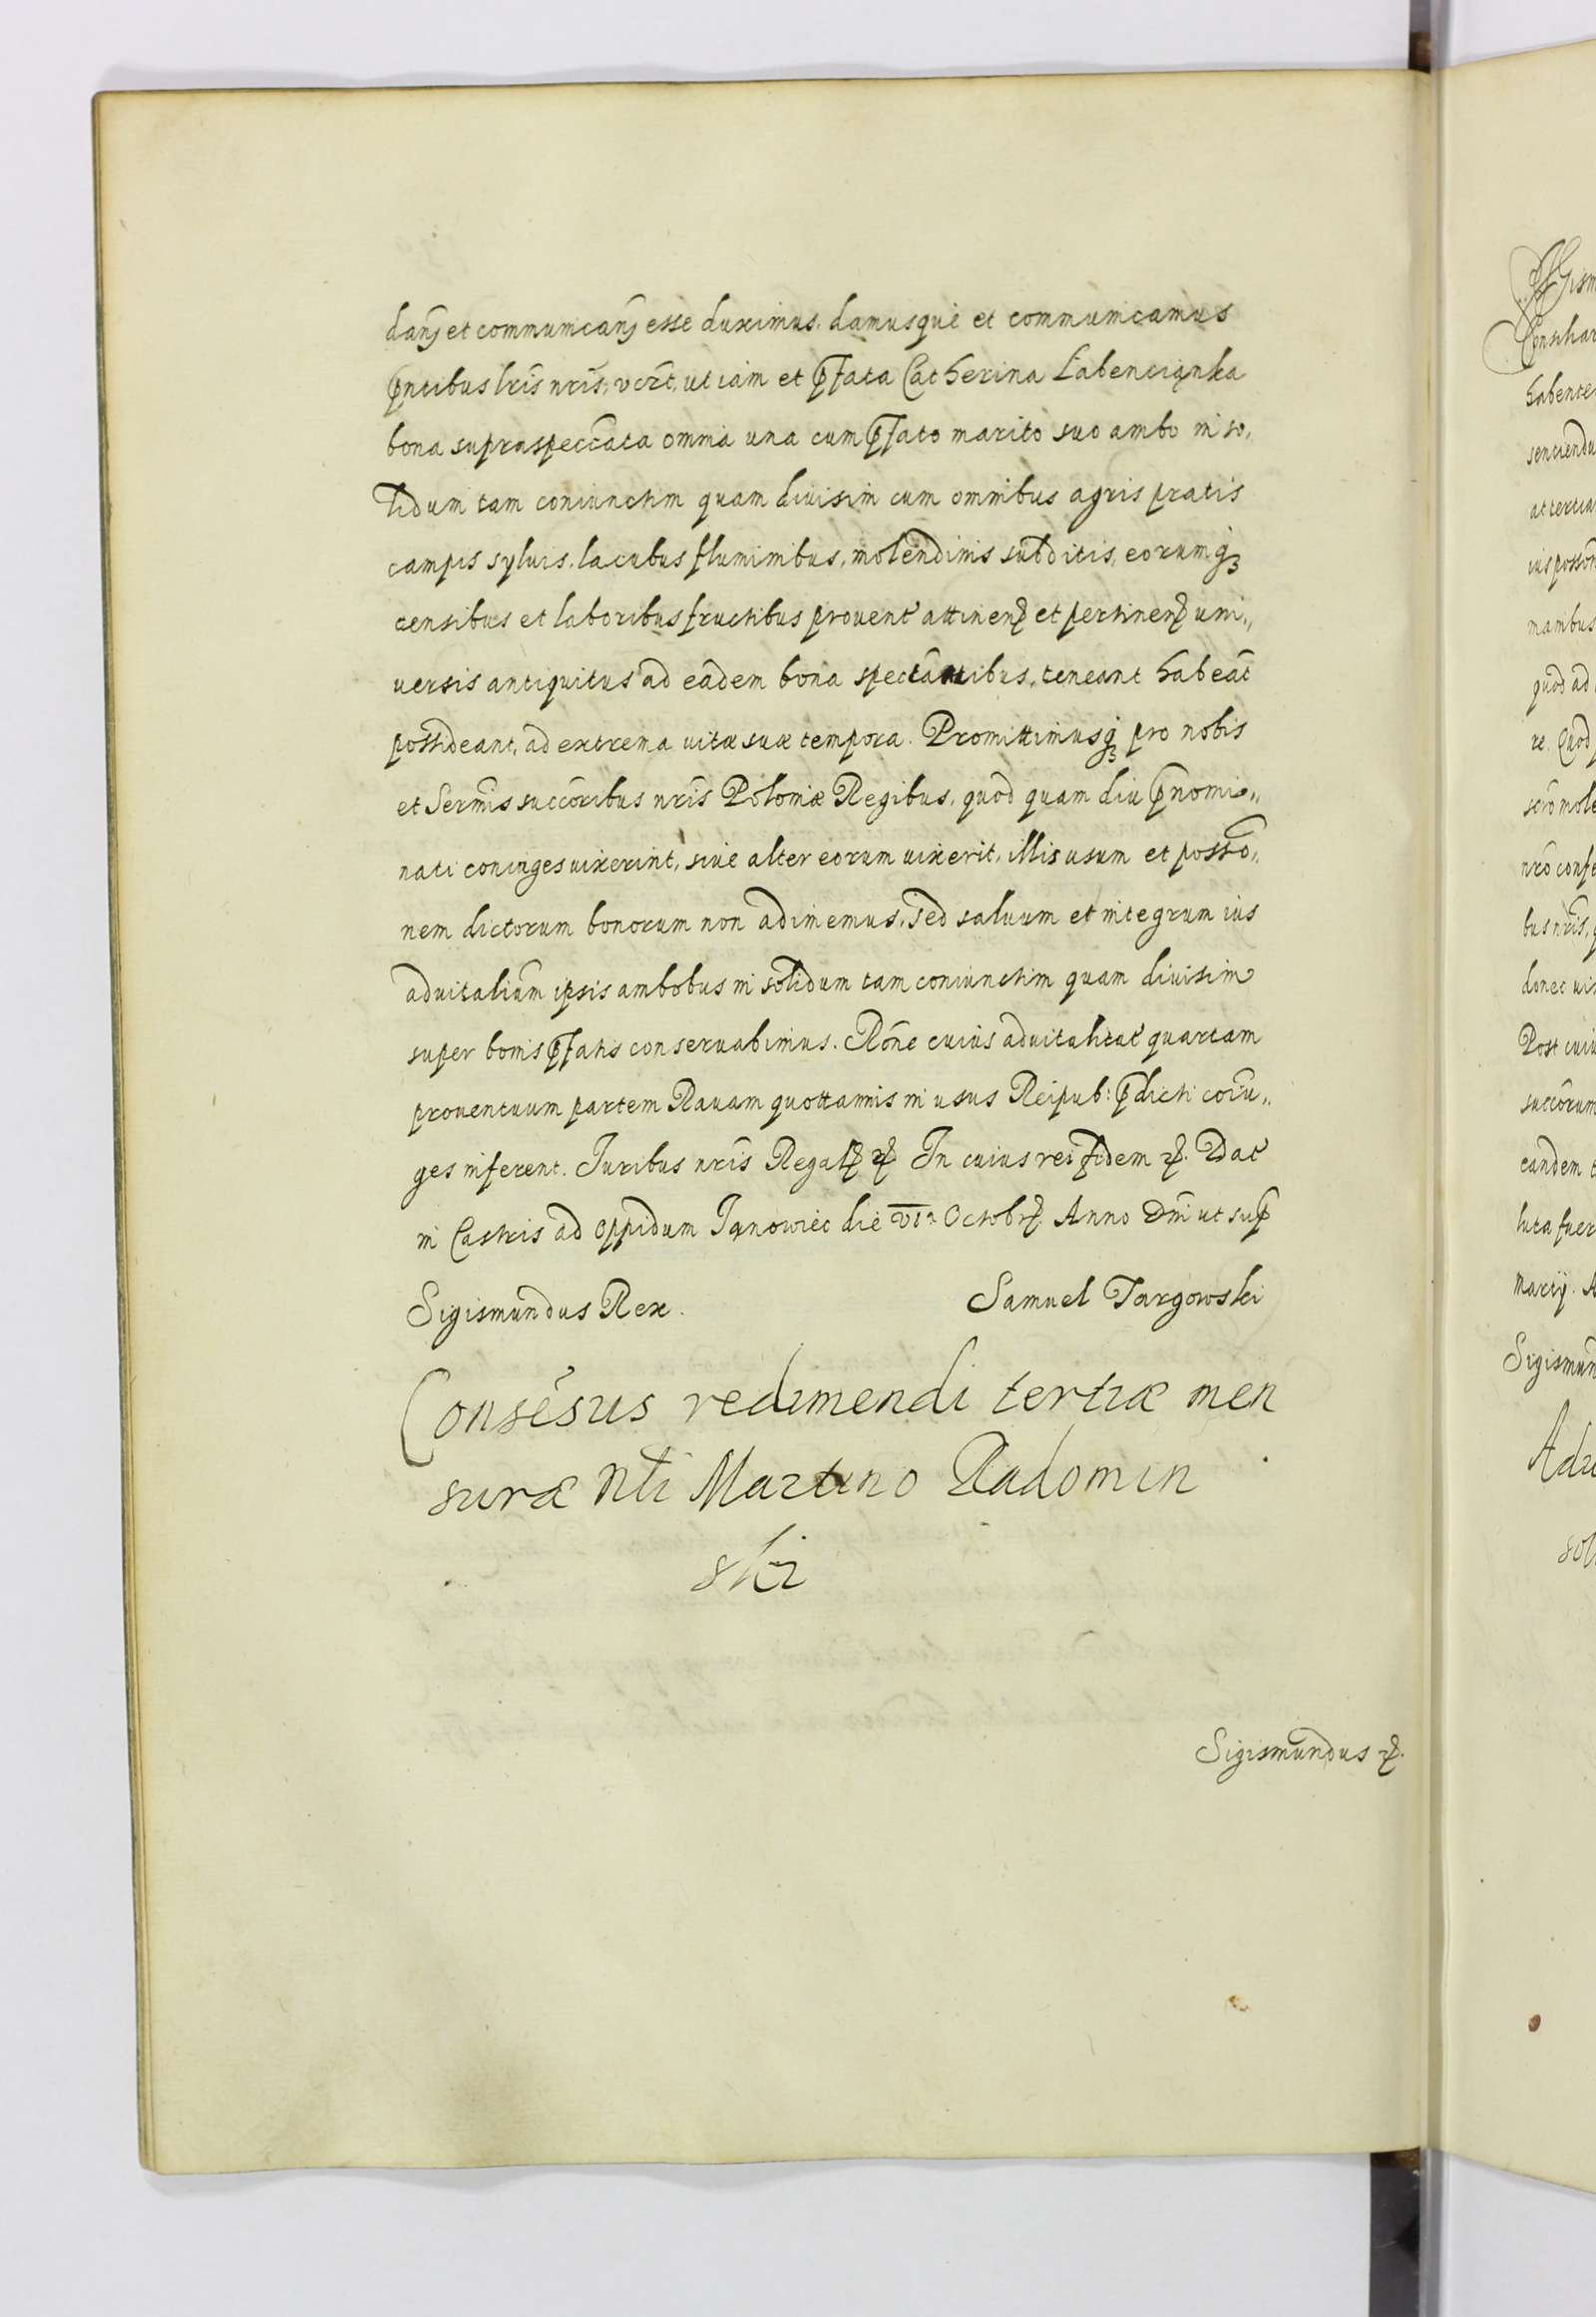 danʒ et communicanʒ esse duximus. damusque et communicamus
p̃ntibus lris nris, vert, ut iam et p̃fata Catherina Łabencianka
bona supraspeccata omnia una cum p̃fato marito suo ambo in so,
lidum tam coniunctim quam diuisim cum omnibus agris pratis
campis syluis. lacubus fluminibus, molendinis subditis, eorumqʒ
censibus et laboribus fructibus prouent attinenꝫ et pertinenꝫ uni,,
uersis antiquitus ad eadem bona spectantibus, teneant habeãt
possideant, ad extrema uitæ suæ tempora. Promittimusqʒ pro nobis
et Sermis succoribus nris Poloniæ Regibus, quod quam diu p̃nomi,,
nati coniuges uixerint, siue alter eorum uixerit, illis usum et posso,,
nem dictorum bonorum non adimemus, sed saluum et integrum ius
aduitalium ipsis ambobus in solidum tam coniunctim quam diuisim
super bonis p̃fatis conseruabimus. Rõne cuius aduitalitat quartam
prouentuum partem Rauam quottannis in usus Reipub: p̃dicti coiu,,
ges inferent. Iuribus nris Regalꝫ ꝛꝫ In cuius rei fidem ꝛꝫ. Dat
in Castris ad Oppidum Janowiec die VIa Octobrꝫ Anno Dni ut sup̃
Sigismundus Rex. Samuel Targowski
Consẽsus redimendi tertiæ men
suræ Nli Martino Radomin
ski
Sigismundus ꝛꝫ.